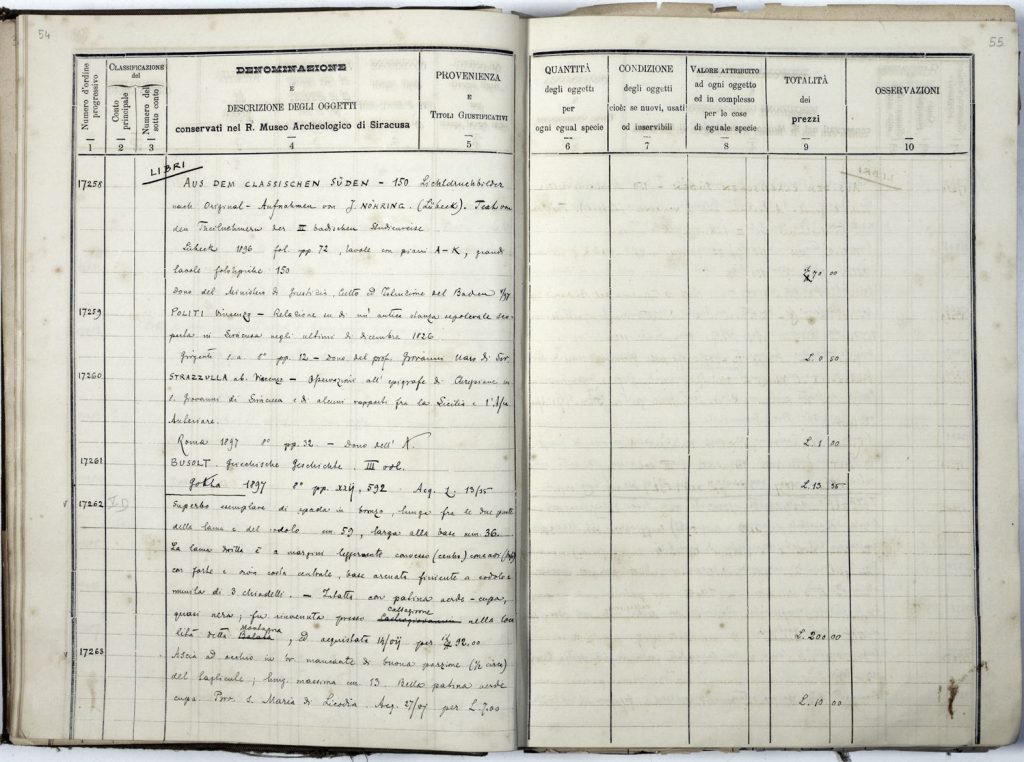 54
Numero d'ordine progressivo
CLASSIFICAZIONE del
Conto principale
Numero del sotto conto
DENOMINAZIONE
E
DESCRIZIONE DEGLI OGGETTI
conservati nel R. Museo Archeologico di Siracusa
PROVENIENZA
E
TITOLI GIUSTIFICATIVI
1 2 3 4 5
LIBRI
17258 AUS DEM CLASSISCHEN SÜDEN - 150 Lichtdruckbilder
nach Original-Aufnahmen von J. NÖHRING. (Lübeck). Text von
den Theilnehmern der II badischen Studienreise
Lubeck 1896 fol. pp. 72, tavole con piani A-K, grandi
tavole fototipiche 150
Dono del Ministero di Giustizia, Culto ed Istruzione del Baden
17259 POLITI Vincenzo - Relazione su di un' antica stanza sepolcrale sco-
perta in Siracusa negli ultimi di dicembre 1826.
Girgenti s. a 8° pp. 12 - Dono del prof. Giovanni di
17260 STRAZZULLA ab. Vincenzo - Osservazioni all' epigrafe di in
S. Giovanni di Siracusa e di alcuni rapporti fra la Sicilia e l'
Roma 1897 8° pp. 32. - Dono dell' A.
17261 BUSOLT. Griechische Geschichte. III vol.
Gotha 1897 8° pp. XXII, 592 Acq. L. 13/35
17262 ID Superbo esemplare di spada in bronzo, lunga fra le due punte
della lama e del codolo cm 59, larga alla base mm. 36.
La lama diritta è a margini leggermente convessi (centro) concavi
con forte e costa centrale, base arcuata finiente a codolo e
munita di 3 chiodelli. - Intatta con patina verde-cupa,
quasi nera; fu rinvenuta presso Castrogiovanni Caltagirone nella loca-
lità detta Balata Montagna, ed acquistata per L. 92.00
17263 Ascia ad occhio in br. mancante di buona porzione (½ circa)
del tagliente; lung. massima cm. 13. Bella patina verde
cupa. Prov. S. Maria di Licodia. Acq. 27/07 per L. 7.00
55
QUANTITÀ
degli oggetti
per
ogni egual specie
CONDIZIONE
degli oggetti
cioè: se nuovi, usati
od inservibili
VALORE ATTRIBUITO
ad ogni oggetto
ed in complesso
per le cose
di eguale specie
TOTALITÀ
dei
prezzi
OSSERVAZIONI
6 7 8 9 10
70 00
L. 0 50
L. 1 00
L. 13 35
L. 200 00
L. 10 00